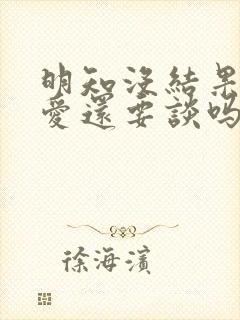 明知沒結果
愛還要談吗
徐海濱